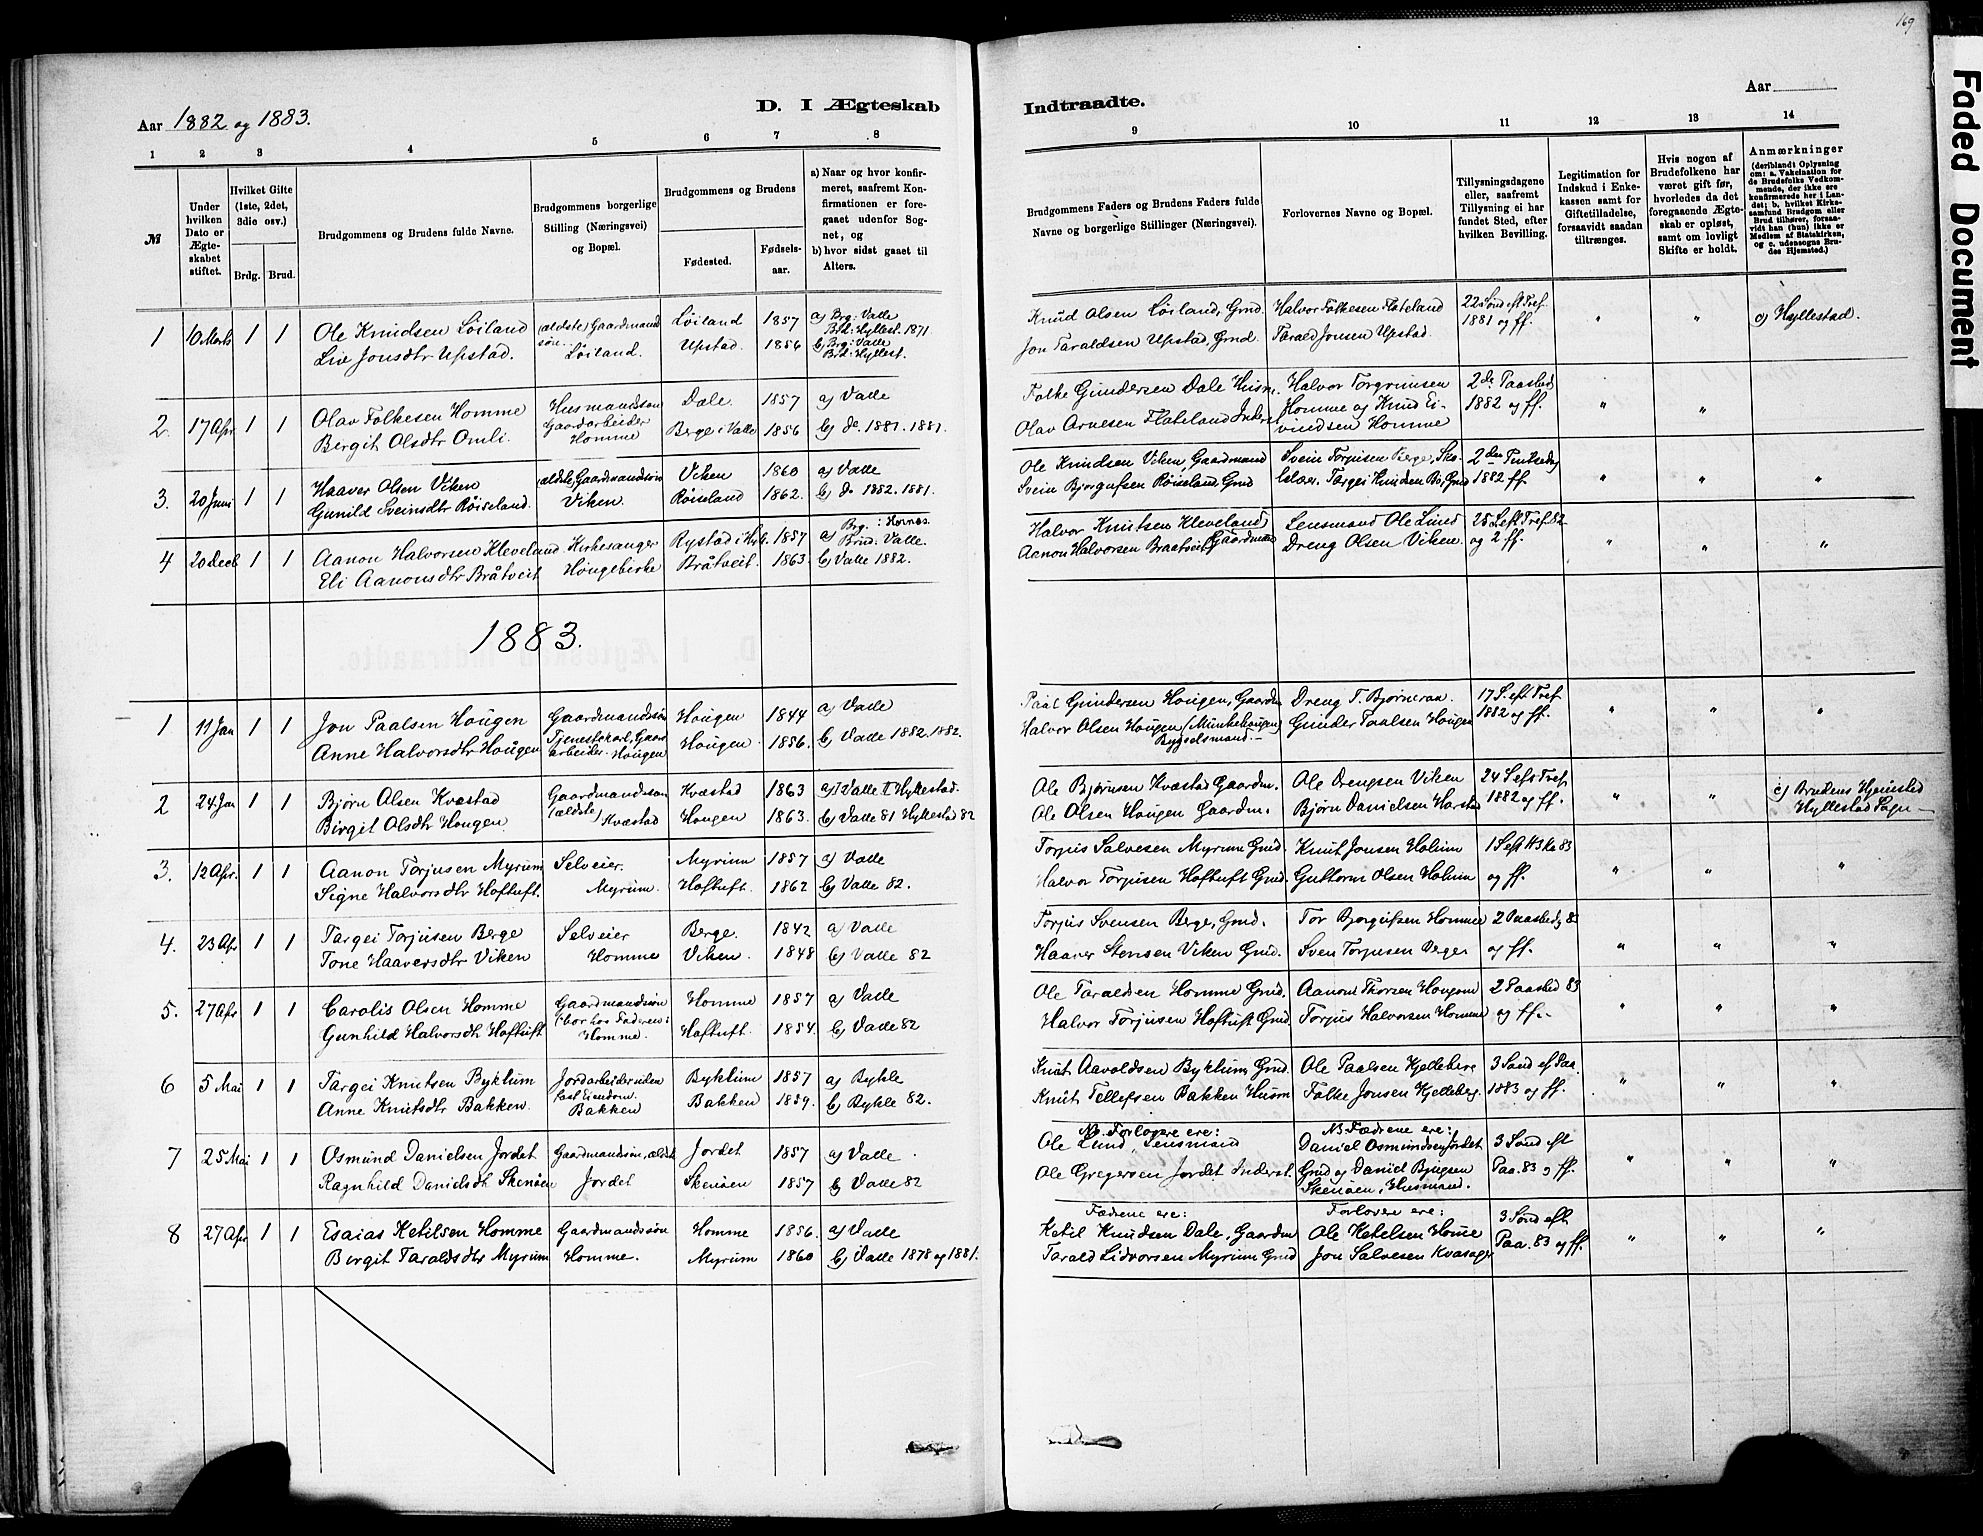 169
Faded Document
Aar 1882 og 1883.
D. I Ægteskab
Indtraadte.
Aar
1 2 3 4 5 6 7 8
9 10 11 12 13 14
№
Under hvilken Dato er Ægteskabet stiftet.
Hvilket Gifte (1ste, 2det, 3die osv.)
Brdg. Brud.
Brudgommens og Brudens fulde Navne.
Brudgommens borgerlige Stilling (Næringsvei) og Bopæl.
Brudgommens og Brudens
Fødested. Fødselsaar.
a) Naar og hvor konfirmeret, saafremt Konfirmationen er foregaaet udenfor Sognet, og
b) hvor sidst gaaet til Alters.
Brudgommens Faders og Brudens Faders fulde Navne og borgerlige Stillinger (Næringsvei).
Forlovernes Navne og Bopæl.
Tillysningsdagene eller, saafremt Tillysning ei har fundet Sted, efter hvilken Bevilling.
Legitimation for Indskud i Enkekassen samt for Giftetilladelse, forsaavidt saadan tiltrænges.
Hvis nogen af Brudefolkene har været gift før, hvorledes da det foregaaende Ægteskab er opløst, samt om lovligt Skifte er holdt.
Anmærkninger (deriblandt Oplysning om: a. Vakcination for de Brudefolks Vedkommende, der ikke ere konfirmerede her i Landet; b. hvilket Kirkesamfund Brudgom eller Brud tilhører, forsaavidt han (hun) ikke er Medlem af Statskirken, og c. udensogns Brudes Hjemsted.)
1 10 Marts 1 1 Ole Knudsen Löiland (ældste) Gaardmandssön Löiland 1857 a) Brg: Valle
Brd: Hyllest. 1871.
Liv Jonsdtr Upstad. Löiland. Upstad. 1856 b) Brg: Valle
Brd: Hyllest.
Knud Olsen Löiland, Gmd. Halvor Folkesen Flateland 22 Sönd eft Tref. " " c) Hyllestad.
Jon Taraldsen Upstad, Gmd. Tarald Jonsen Upstad. 1881 og ff.
2. 17 Apr 1 1 Olav Folkesen Homme Husmandssön Dale. 1857 a) Valle
Bergit Olsdtr Omli. Gaardarbeider Homme Berge i Valle 1856 b) do. 1881. 1881.
Folke Gundersen Dale Husm. Halvor Torgrimsen 2de Paasked " "
Olav Arnesen Flateland Inderst Homme og Knud Eivindsen Homme 1882 og ff.
3. 20 Juni 1 1 Haaver Olsen Viken (ældste) Gaardmandssön Viken 1860 a) Valle
Gunild Sveinsdtr Röiseland. Viken. Röiseland 1862. b) do 1882. 1881.
Ole Knudsen Viken, Gaardmand Svein Torjusen Berge, 2den Pintsedag " " "
Svein Bjorgufsen Röiseland, Gmd Targei Knudsen Bö, Gmd 1882 ff.
4 20 Decb 1 1 Aanon Halvorsen Kleveland Kirkesanger Rystad i 1857 a) Brg.: Hornes.
Brud: Valle.
Eli Aanonsdtr Bråtveit Hougebirke Bråtveit. 1863. b) Valle 1882.
Halvor Knutsen Kleveland Lensmand Ole Lund 25 S eft Tref. 82 " " "
Aanon Halvorsen Braatveit Gaardmænd Dreng Olsen Viken. og 2 ff.
1883.
1 11 Jan 1 1 Jon Paalsen Hougen Gaardmandssön Hougen 1844 a) Valle
Anne Halvorsdtr Hougen Tjenestekarl, Gaardarbeider. Hougen Hougen 1856. b) Valle 1882. 1882.
Paal Gundersen Hougen, Gaardm Dreng T. Bjørneraa. 17 S. eft Tref " " "
Halvor Olsen Hougen (Munkehougen) Gunder Paalsen Hougen 1882 og ff.
Bygselsmand.–
2 24 Jan 1 1 Bjørn Olsen Kvæstad Gaardmandssön Kvæstad 1863 a) I Valle II Hyllestad.
Birgit Olsdtr Hougen (ældste) Kvæstad Hougen 1863. b) Valle 81 Hyllestad 82
Ole Bjørnsen Kvæstad Gaardm. Ole Drengsen Viken 24 S eft Tref. " " c) Brudens Hjemsted
Ole Olsen Hougen Gaardm. Bjørn Danielsen Harstad 1882 og ff. Hyllestad Sogn –
3. 12 Apr. 1 1 Aanon Torjusen Myrum Selveier. Myrum 1857 a) Valle
Signe Halvorsdtr Hoftuft. Myrum. Hoftuft. 1862 b) Valle 82.
Torjus Salvesen Myrum Gmd. Knut Jonsen Holum 1 S eft H3Ko 83 " " "
Halvor Torjusen Hoftuft Gmd. Guttorm Olsen Holum og ff.
4. 23 Apr 1 1 Targei Torjusen Berge Selveier Berge. 1842 a) Valle
Tone Haaversdtr Viken Homme Viken. 1848 b) Valle 82
Torjus Svensen Berge, Gmd. Tor Bjorgufsen Homme 2 Paasked 83 " " "
Haaver Stensen Viken Gmd. Sven Torjusen Berge og ff.
5. 27 Apr 1 1 Carolis Olsen Homme Gaardmandssön Homme 1857 a) Valle
Gunhild Halvorsdtr Hoftuft (bor hos Faderen: Homme. Hoftuft. 1854. b) Valle 82
Ole Taraldsen Homme Gmd. Aanond Thorsen Hougom 2 Paasked 83 " " "
Halvor Torjusen Hoftuft Gmd. Torjus Halvorsen Homme og ff.
6 5 Mai 1 1 Targei Knutsen Byklum Jordarbeider uden Byklum 1857 a) Bykle
Anne Knutsdtr Bakken. fast Eiendom. Bakken Bakken 1859. b) Bykle 82.
Knut Aavoldsen Byklum Gmd. Ole Paalsen Kjelleberg 3 Sönd ef Paa. " " "
Knut Tellefsen Bakken Husm Folke Jonsen Kjelleberg. 1883 og ff.
7 25 Mai 1 1 Osmund Danielsen Jordet Gaardmandssön, ældst Jordet 1857 a) Valle
Ragnhild Danielsdtr Skenöen Jordet Skenöen 1857 b) Valle 82
NB. Forlovere ere: NB Fædrene ere:
Ole Lund, Lensmand Daniel Osmundsen Jordet 3 Sönd eft " " "
Ole Gregersen Jordet Inderst. Gmd og Daniel Bjugsen Paa. 83 og ff.
Skenöen, Husmand.
8 27 Apr 1 1 Esaias Ketilsen Homme Gaardmandssön Homme 1856. a) Valle
Birgit Taraldsdtr Myrum Homme. Myrum 1860 b) Valle 1878 og 1881.
Fædrene ere: Forlovere ere:
Ketil Knudsen Dale, Gaardm Ole Ketelsen Homme 3 Sönd eft " " "
Tarald Lidvorsen Myrum Gmd Jon Salvesen Kvasager Paa. 83 og ff.